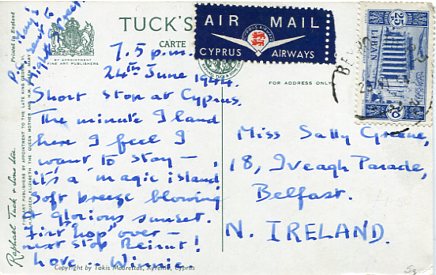 TUCK'S
CARTE
AIR MAIL
CYPRUS AIRWAYS
LIBAN
FOR ADDRESS ONLY
7.5 p.m.
24th June
Short stop at Cyprus.
The minute I land
here I feel I
want to stay –
it's a magic island
Soft breeze blowing
a glorious sunset.
First "hop" over –
next stop Beirut!
Love – Winnie
Miss Sally Greene,
18, Iveagh Parade,
Belfast.
N. IRELAND.
Raphael Tuck & Sons Ltd.
Printed in England
BY APPOINTMENT
FINE ART PUBLISHERS
Copyright by Takis
Cyprus